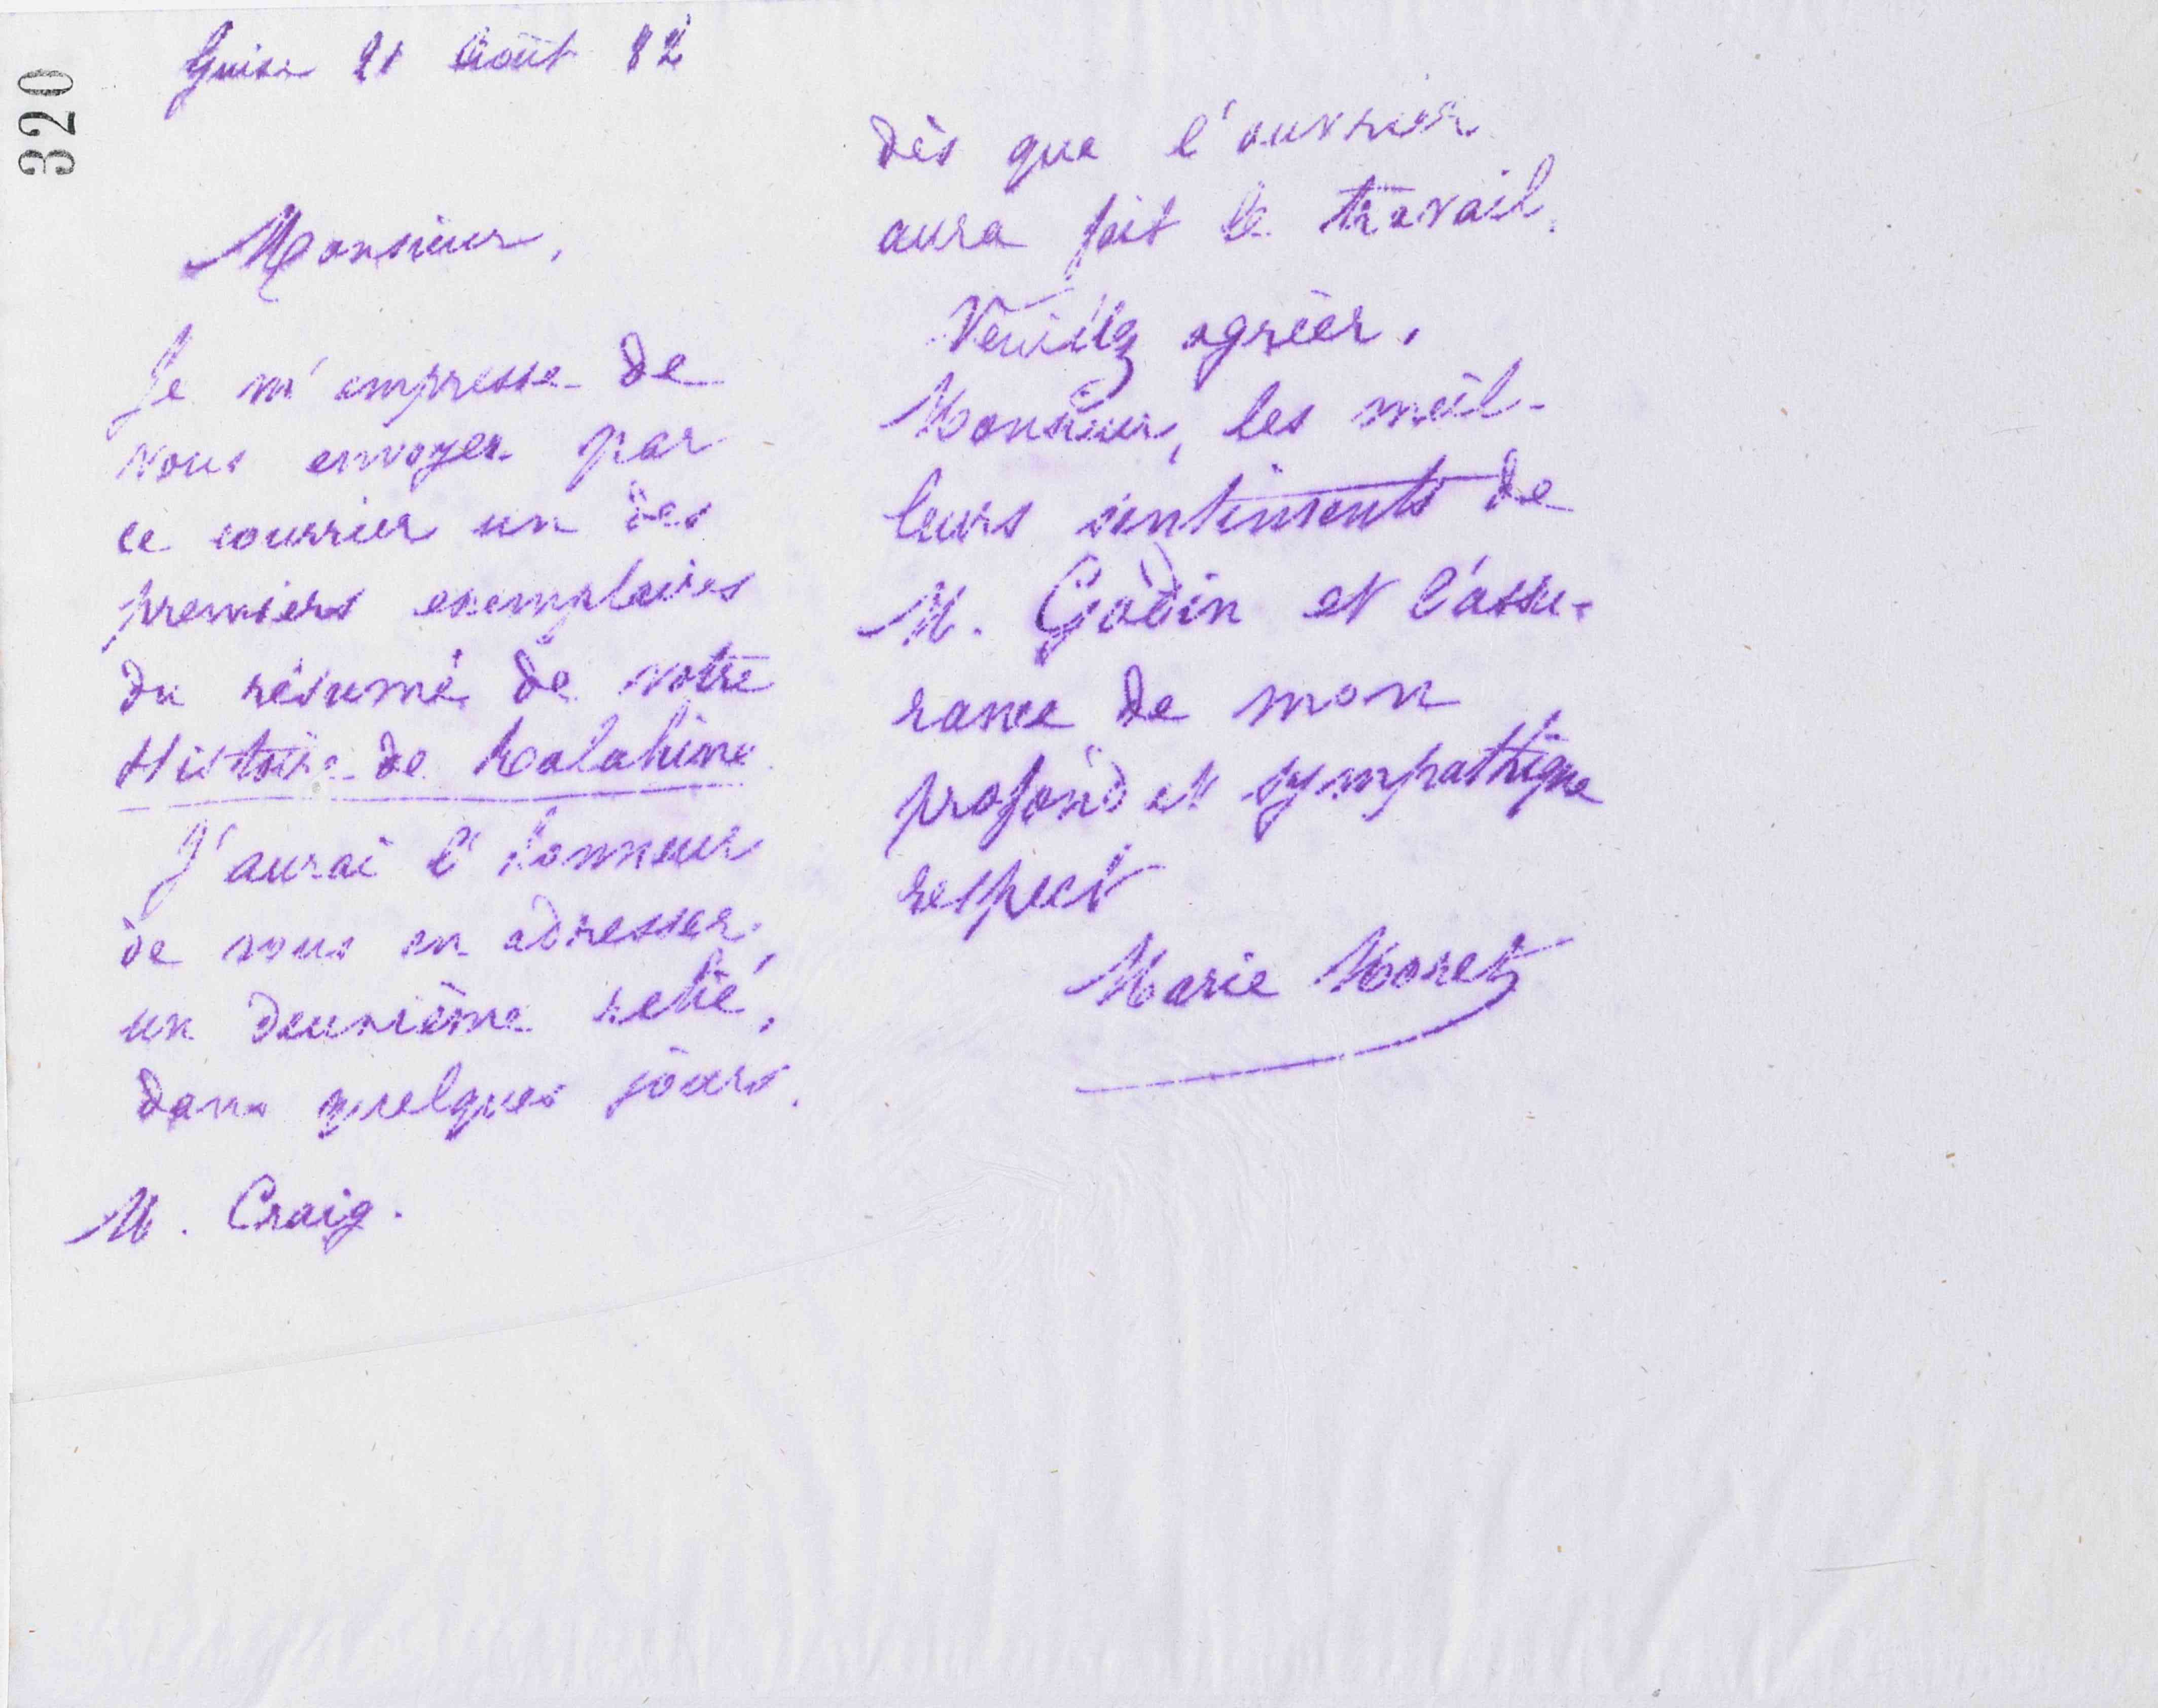 320
Guise 21 Août 82
Monsieur,
Je m'empresse de
vous envoyer par
ce courrier un des
premiers exemplaires
du résumé de votre
Histoire de Ralahine.
J'aurai l'honneur
de vous en adresser
un deuxième relié,
dans quelques jours.
M. Craig.
dès que l'ouvrier
aura fait le travail.
Veuillez agréer,
Monsieur, les meil-
leurs sentiments de
M. Godin et l'assu-
rance de mon
profond et sympathique
respect
Marie Moret